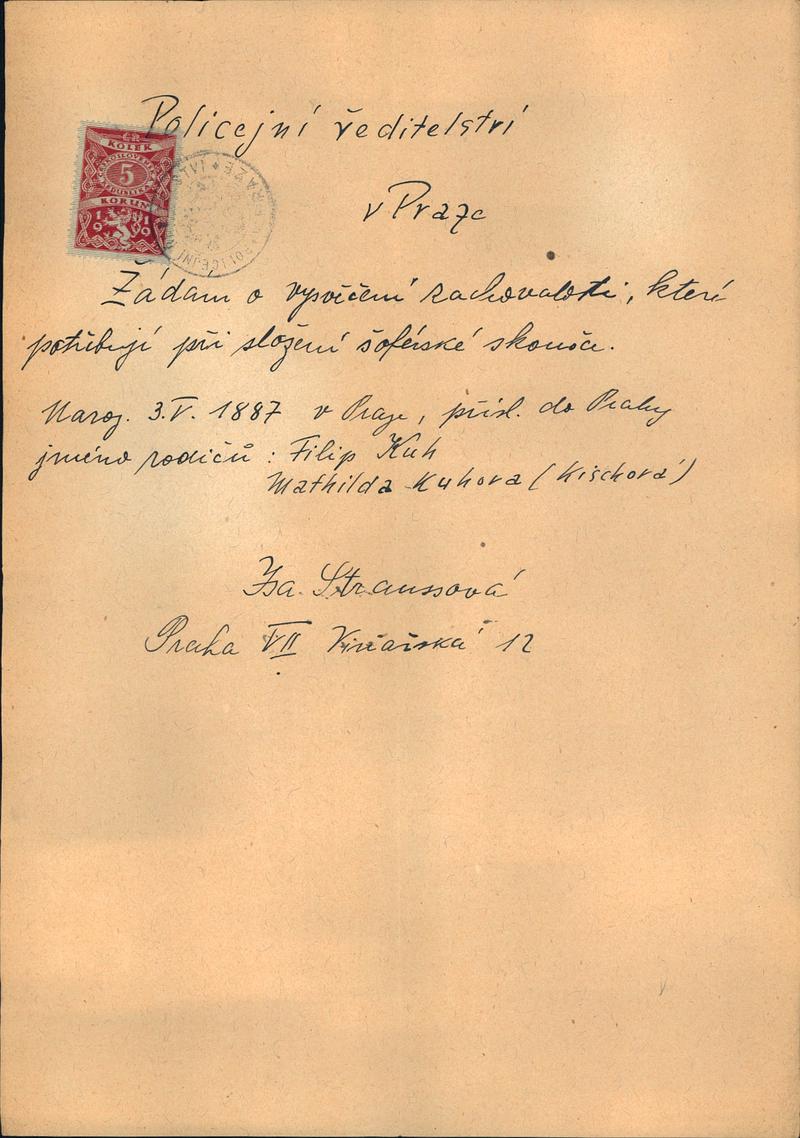 Policejní ředitelství
v Praze
ČR
KOLEK
5
KORUN
1919
POLICEJNÍ
PRAZE
Žádám o vysvěčení zachovalosti, které
potřebuji při složení šoférské skoušce.
Naroz. 3.V. 1887 v Praze, přísl. do Prahy
jméno rodičů : Filip Kuh
Mathilda Kuhova (Kischová)
Isa Straussová
Praha VII Vinařská 12